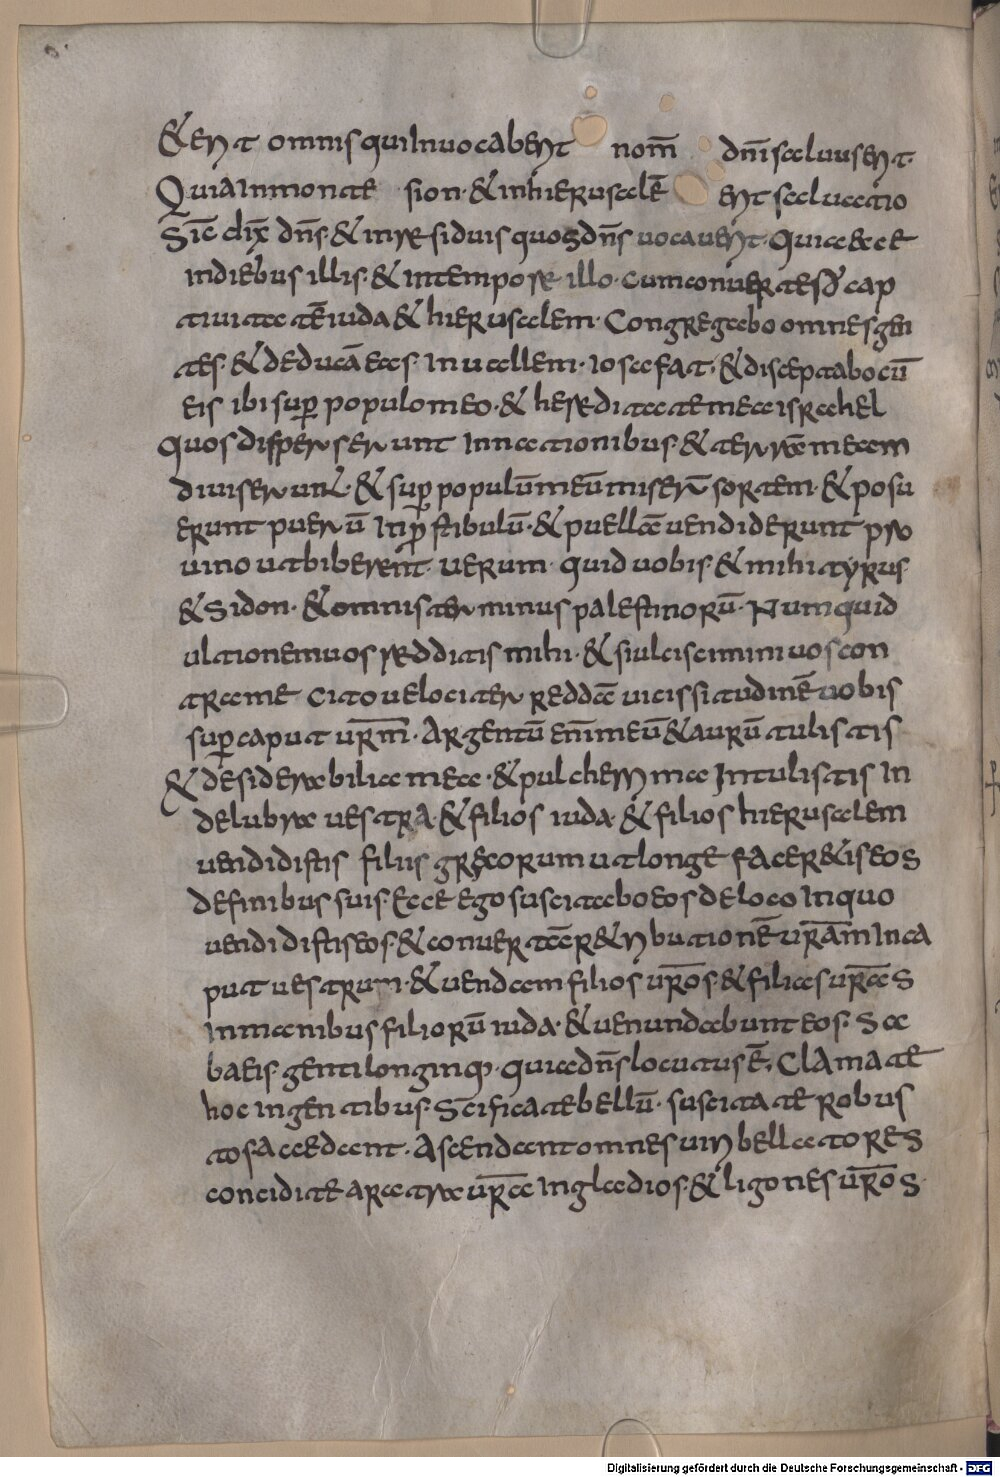 &erit omnis qui Inuocaberit nom̄ dn̄i saluus erit.
Quia In monte sion · & in hierusalē erit saluatio
Sic dix̄ dn̄s · & in residuis quos dn̄s uocauerit · Quia ecce
In diebus illis · & In tempore illo · cum conuertero cap
tiuitatē iuda & hierusalem · Congregabo omnes gen
tes · & deducā eas · In uallem · Iosafat · & disceptabo cū
eis ibi sup populo meo · & hereditate mea israhel
quos disperserunt In nationibus · & terrā meam
diuiserunt · & sup populū meū miserū sortem · & posu
erunt puerū In pstibulū · & puellā uendiderunt pro
uino ut biberent · uerum quid uobis · & mihi tyrus
& Sidon · & omnis terminus palestinorū · Numquid
ultionem uos redditis mihi · & si ulciscimini uos con
tra me Cito uelociter reddā uicissitudinē uobis
sup caput urm̄ · Argentū enī meū & aurū tulistis
& desiderabilia mea · & pulcherrima Intulistis In
delubra uestra · & filios iuda · & filios hierusalem
uendidistis filiis grecorum ut longe facer&is eos
de finibus suis · Ecce ego suscitabo eos de loco In quo
uendidistis eos · & conuertā r&ributionē urām In ca
put uestrum · & uendam filios urōs · & filias urās
In manibus filiorū iuda · & uenundabunt eos · Sa
baeis genti longinq · quia dn̄s locutus ē, Clamate
hoc In gentibus · Scificate bellū · suscitate robus
tos accedant · Ascendant omnes uiri bellatores
concidite aratra urā In gladios · & ligones urōs
Digitalisierung gefördert durch die Deutsche Forschungsgemeinschaft - DFG